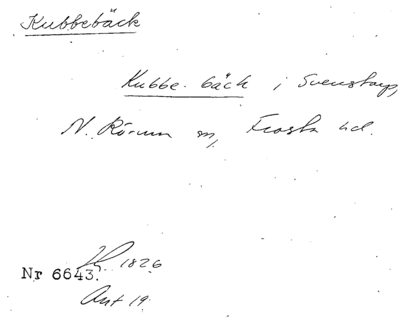 Kubbebäck
Kubbe-bäck i Svenstorp,
N. Rörum sn, Frosta hd.
1826
Nr 6643.
Ant 19